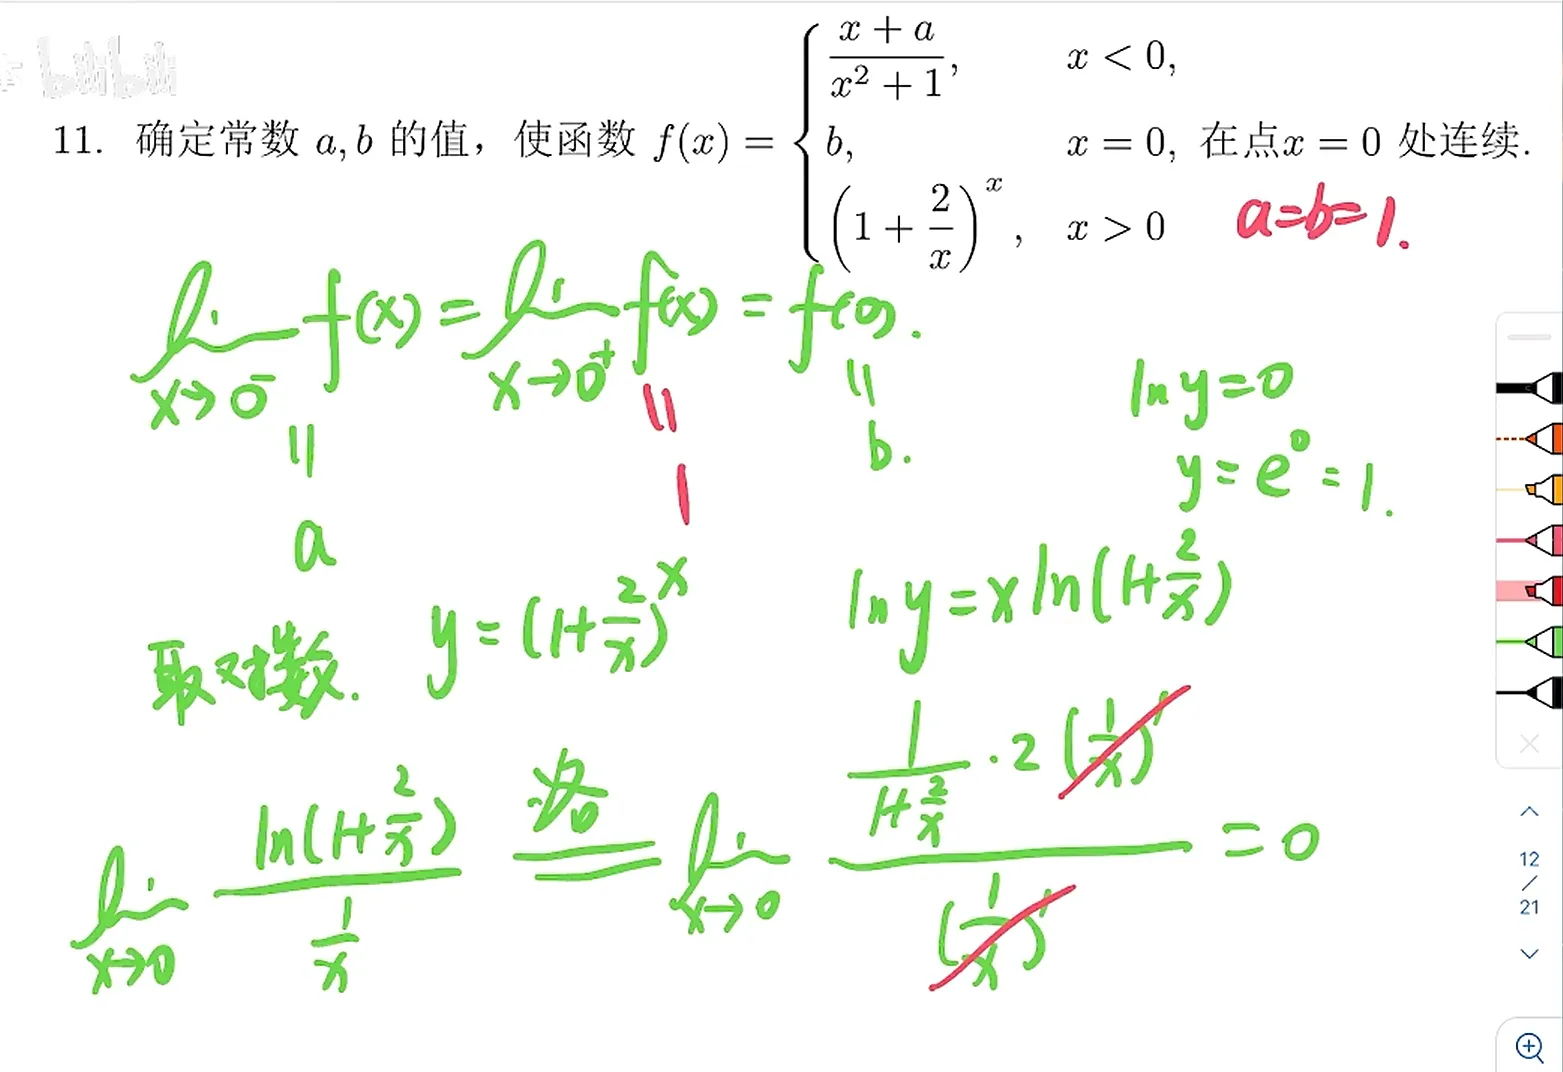 bilibili
11. 确定常数 a, b 的值，使函数 f(x) = { (x + a)/(x² + 1), x < 0,
b, x = 0, 在点x = 0 处连续.
(1 + 2/x)^x, x > 0
a=b=1.
lim x→0⁻ f(x) = lim x→0⁺ f(x) = f(0).
= a
= 1
= b.
ln y=0
y = e⁰ = 1.
取对数. y = (1+2/x)^x ln y = x ln(1+2/x)
lim x→0 ln(1+2/x) / (1/x) = lim x→0 (1/(1+2/x) · 2 (1/x)') / (1/x)' = 0
12
/
21